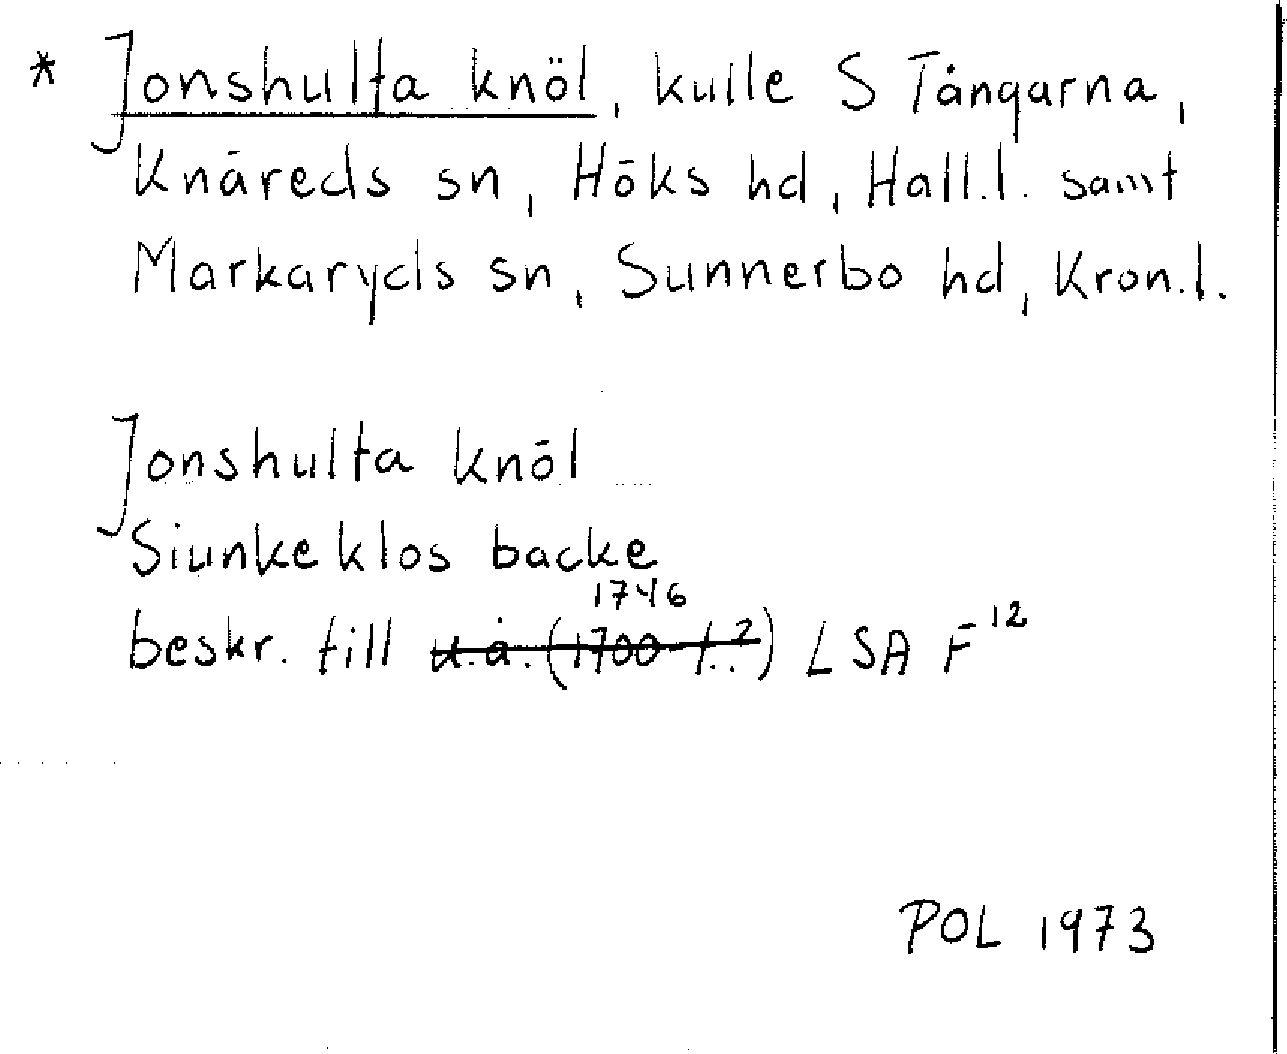 * Jonshulta knöl, kulle S Tångarna,
Knäreds sn, Höks hd, Hall.l. samt
Markaryds sn, Sunnerbo hd, Kron.l.
Jonshulta knöl
Siunkeklos backe
1746
beskr. till u.å. (1700-t.?) LSA F12
POL 1973